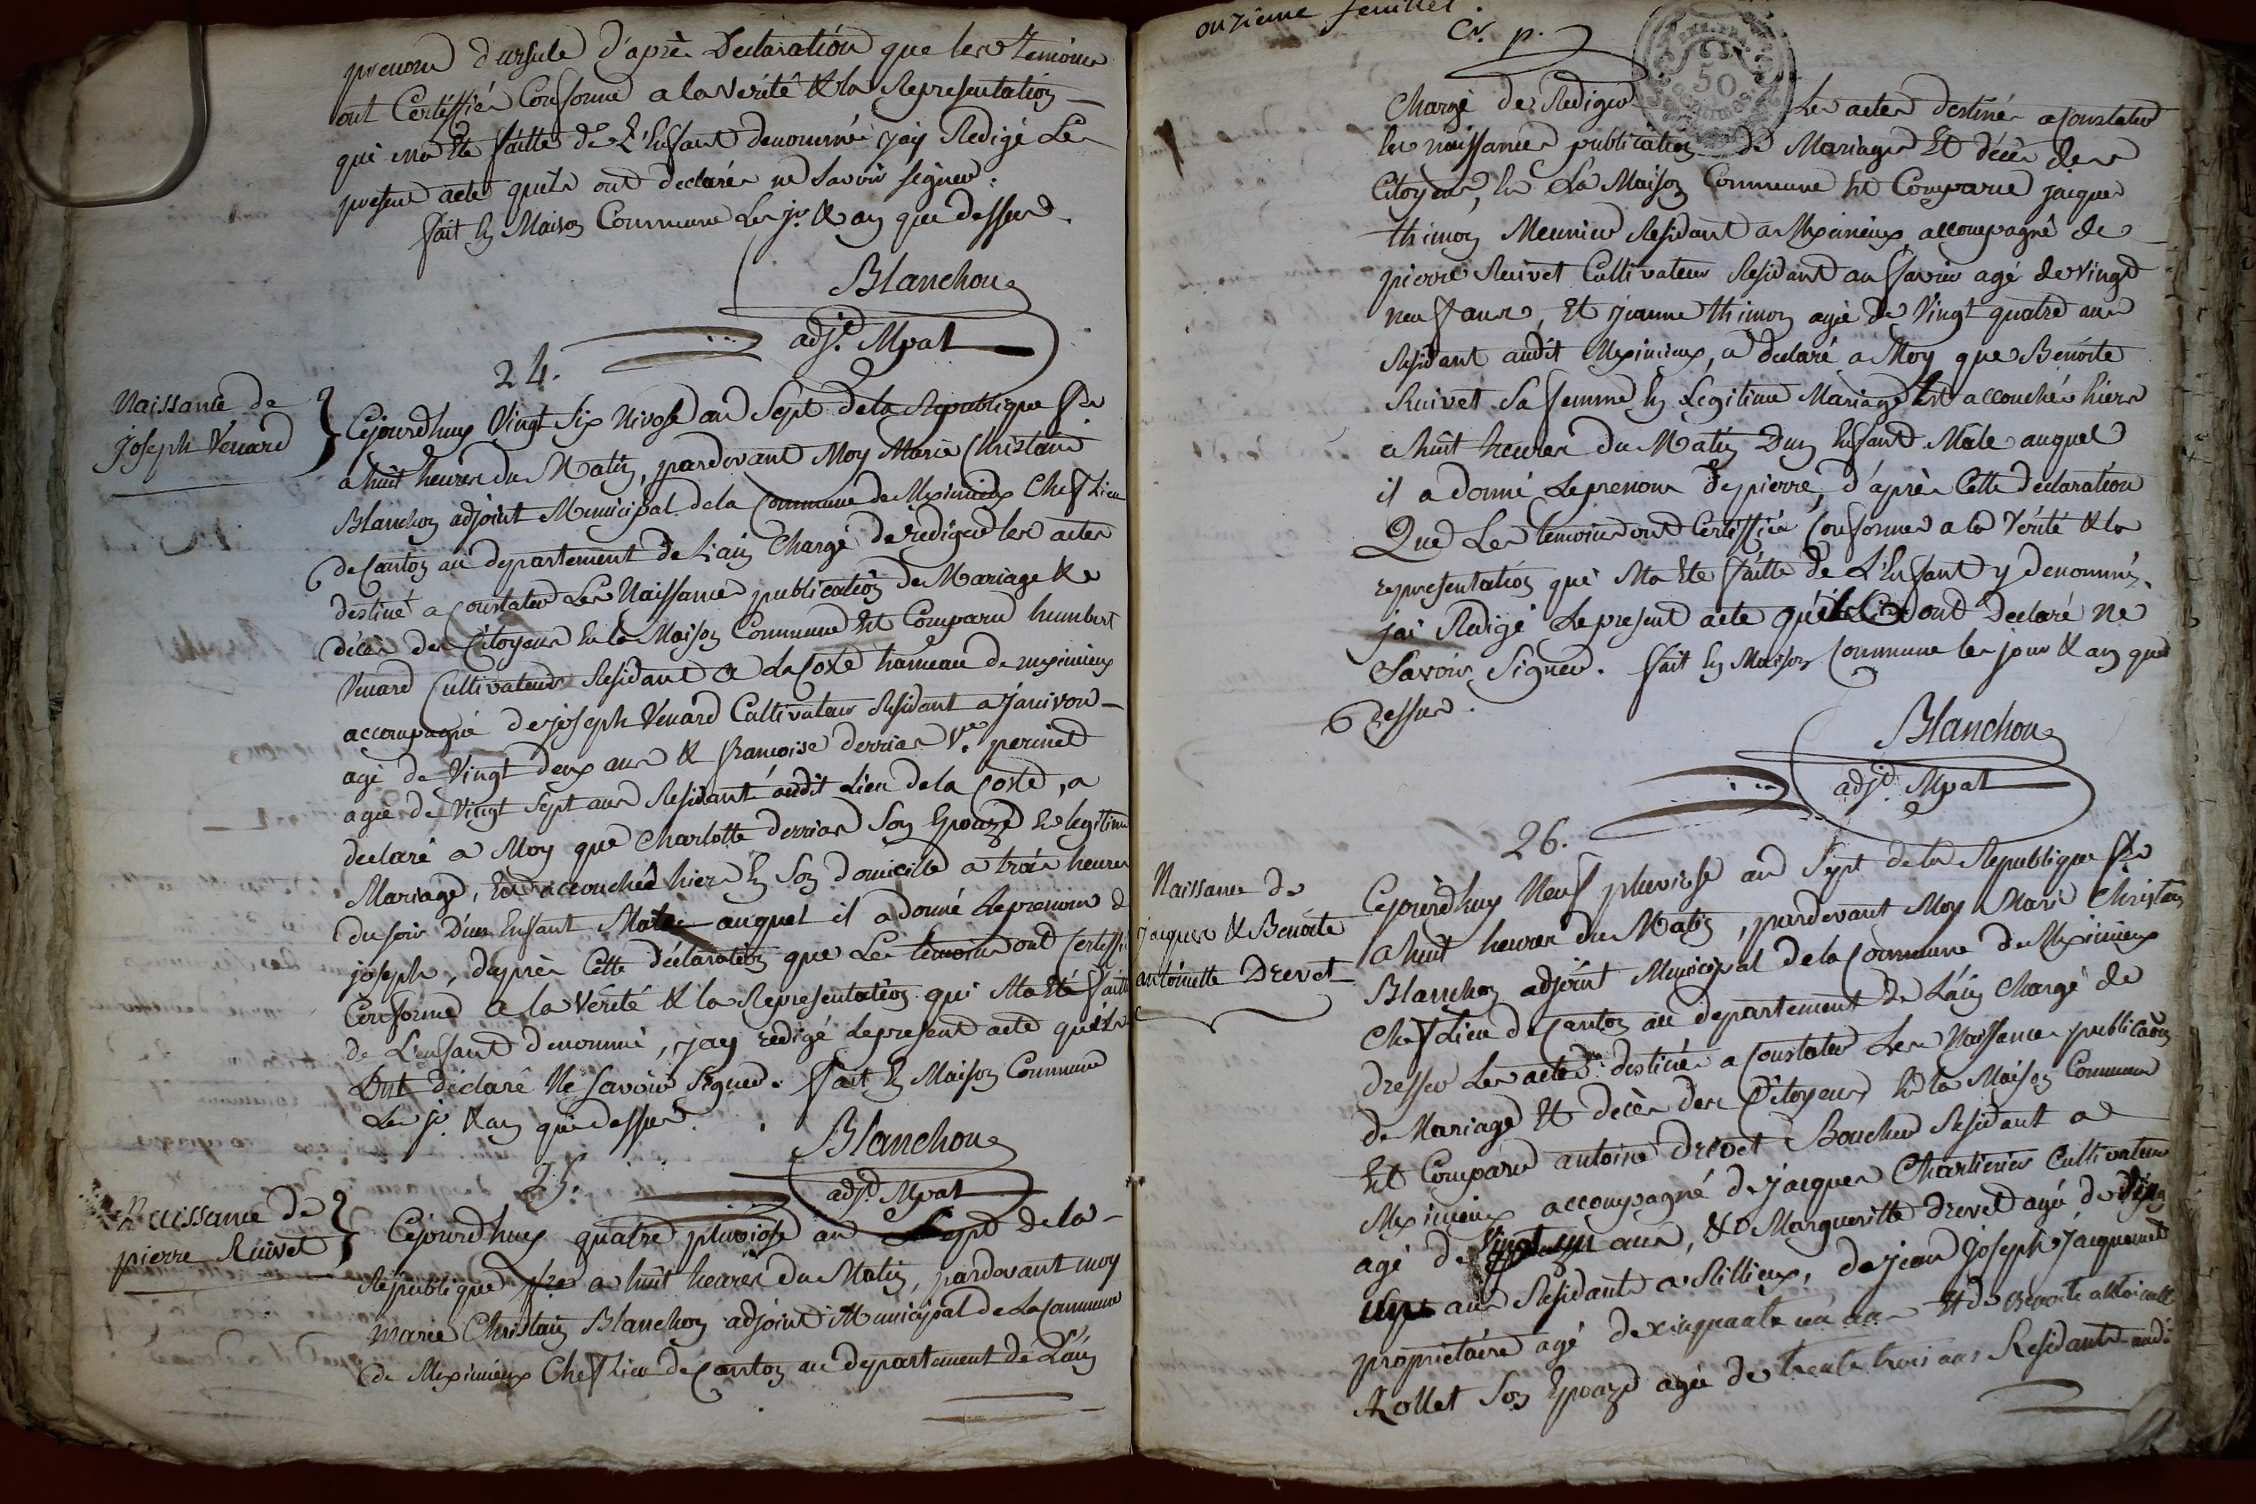 prenom d'ursule d'après Declaration que les temoins
ont Certiffiés Conforme a la Vérité & la Representation
qui ma Eté faitte de L'Enfant denommé jay Redigé Le
present acte qu'ils ont declarés ne Savoir signer.
fait En Maison Commune Les jr. & an que dessus.
Blanchon
adjt. Mpal
24.
Naissance de
joseph Venard
Cejourdhuy Vingt Six Nivose an Sept de la Republique fse
a huit heures du Matin, pardevant Moy Marie Christain
Blanchon adjoint Municipal de la Commune de Meximieux Chef Lieu
de Canton au departement de L'ain Chargé de rediger les actes
destiné a Constater Les Naissances publication de Mariage &
décès des Citoyens En la Maison Commune Est Comparu humbert
Venard Cultivateur Residant a La Coste hameau de meximieux
accompagné de joseph Venard Cultivateur Residant a Janivon
agé de Vingt deux ans & francoise derrias Ve. perinet
agée de Vingt Sept ans Residant audit Lieu de la Coste, a
declaré a Moy que Charlotte derrias Son Epouze En legitime
Mariage, Est accouchée hier En Son domicille a trois heures
du soir D'un Enfant Mâle auquel il a donné Le prenom de
joseph, d'après Cette déclaration que Les temoins ont Certiffié
Conforme a la Vérité & la Representation qui Ma Eté faitte
de L'enfant denommé, jay redigé Le present acte qu'ils
Ont declaré Ne Savoir Signer. fait En Maison Commune
Les jr. & an que dessus.
Blanchon
adjt. Mpal
25.
Naissance de
pierre Ruivet
Cejourdhuy quatre pluviose an Sept de la
Republique fse a huit heures du Matin, pardevant moy
Marie Christain Blanchon adjoint Municipal de La Commune
de Meximieux Chef Lieu de Canton au departement de L'ain
onzième feuillet.
Cr. p.
50
Chargé de Rediger Les actes destinés a Constater
les naissances publication de Mariages Et décès des
Citoyens, En La Maison Commune Est Comparu jacques
thimon Meunier Residant a Meximieux accompagné de
pierre Ruivet Cultivateur Residant au favier agé de vingt
neuf ans, Et jeanne thimon agée de Vingt quatre ans
Residant audit Meximieux, a declaré a Moy que Benoite
Ruivet Sa femme En Legitime Mariage Est accouchée hier
a huit heures du Matin D'un Enfant Mâle auquel
il a donné Le prenom de pierre, d'après Cette declaration
Que Les temoins ont Certiffié Conforme a la Vérité & la
representation qui Ma Eté faitte de L'Enfant y denommé.
jai Redigé Le present acte qu'ils ont Declaré Ne
Savoir Signer. fait En Maison Commune les jour & an que
dessus.
Blanchon
adjt. Mpal
26.
Naissance de
jacques & Benoite
antoinette Drevet
Cejourdhuy Neuf pluviose an Sept de la Republique fse
a huit heures du Matin, pardevant Moy Marie Christain
Blanchon adjoint Municipal de la Commune de Meximieux
Chef Lieu de Canton au departement de L'ain Chargé de
dresser Les actes destinés a Constater Les Naissances publicaon
de Mariage Et decès des Citoyens En la Maison Commune
Est Comparu antoine drevet Boucher Residant a
Meximieux accompagné de jacques Charlieries Cultivateur
agé de Vingt un ans, & Marguerite Drevet agée de Ving
ans Residants a Rillieux, de jean joseph jacquemet
proprietaire agé de cinquante un ans Et de Benoite antoinette
Rollet Son Epouze agée de trente trois ans Residants audi